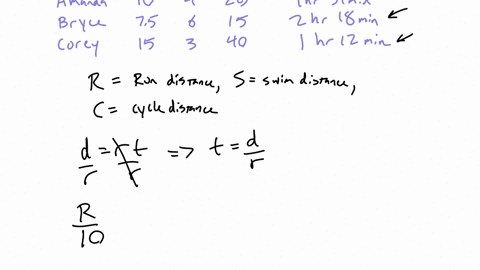 Bryce 7.5 6 15 2 hr 18 min ←
Corey 15 3 40 1 hr 12 min ←
R = Run distance, S = swim distance,
C = cycle distance
d/r = rt/r => t = d/r
R/10